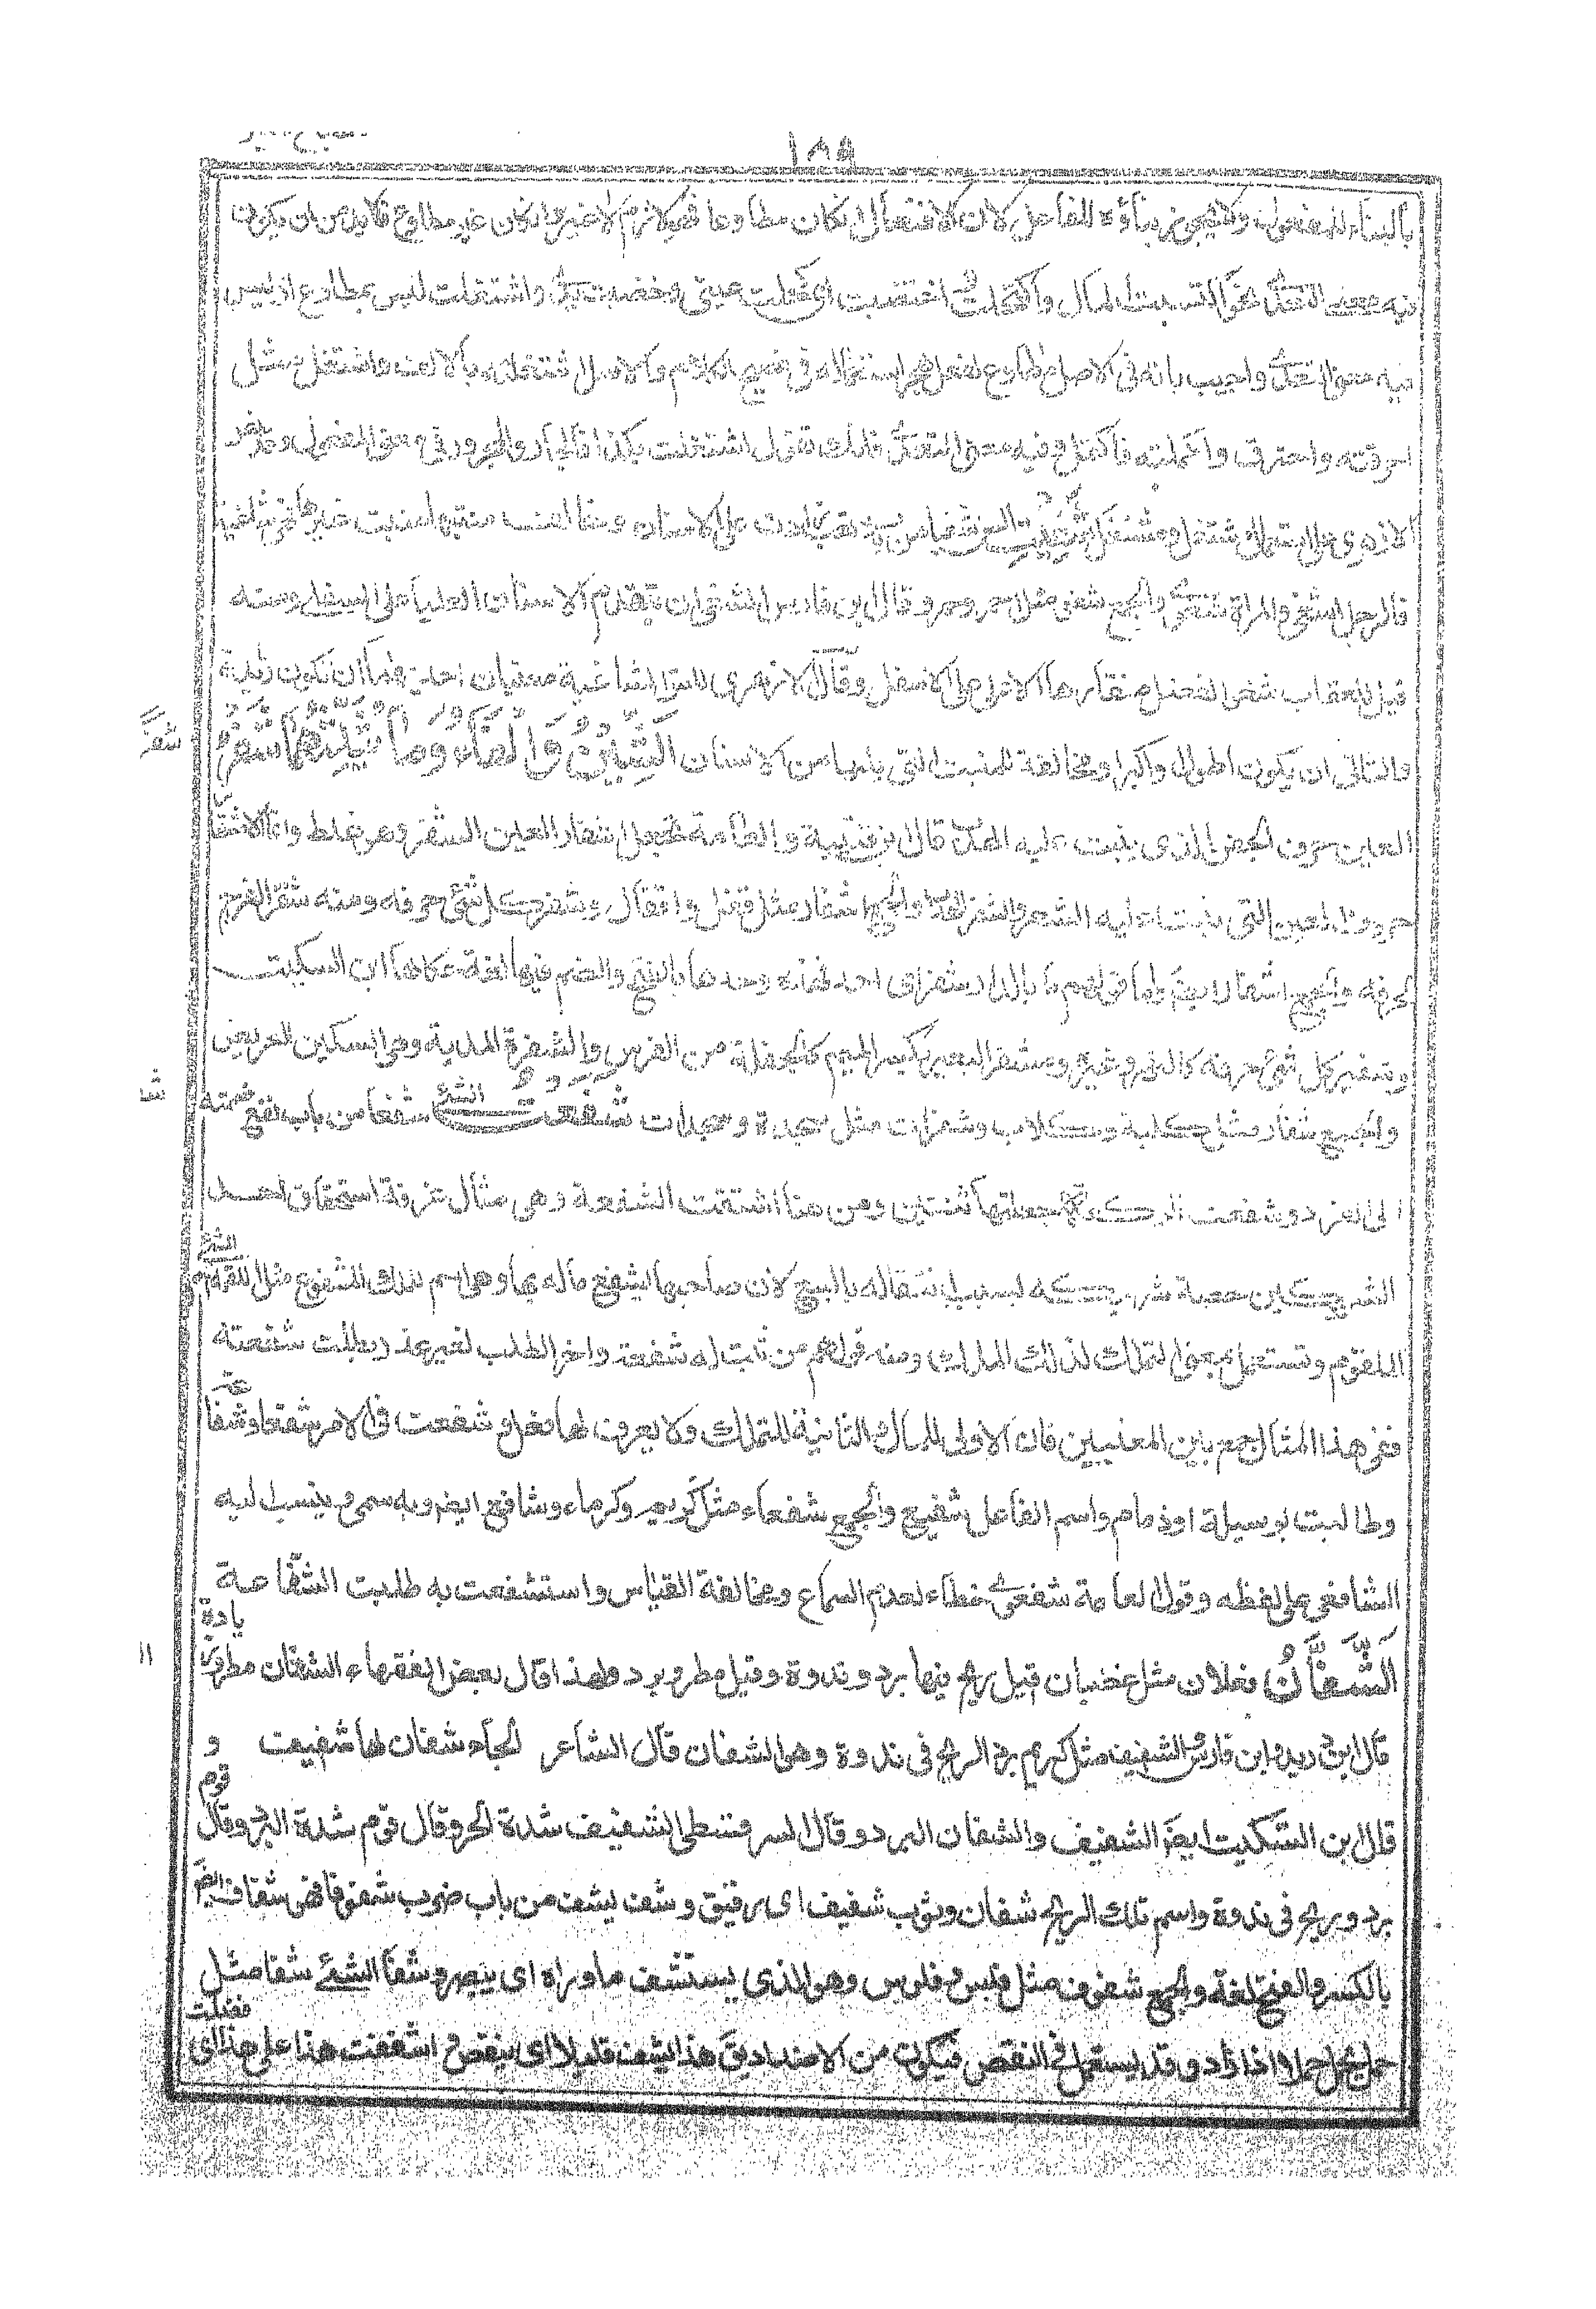 ١٨٩
بالبناء للمفعول ولا يجوز بناؤه للفاعل لان الافتعال ان كان مطاوعا فهو لازم لا غير وان كان غير مطاوع فلا بد من ان يكون
فيه معنى التعدى نحو اكتسبت المال واكتحلت اختضبت اى كحلت عينى وخضبت يدى واشتغلت ليس بمطاوع اذ ليس
فيه معنى التعدى واجيب بانه فى الاصل مطاوع لفعل هجر استعماله فى فصيح الكلام والاصل اشتغلته بالالف واشتغل مثل
احرقته واحترق واكملته فاكتمل وفيه معنى التعدى فانك تقول اشتغلت بكذا فالجار والمجرور فى معنى المفعول وقد نص
الازهرى على استعمال اشتغل ومشتغل شغيت السن شغا من باب تعب زادت على الاسنان وخالف منبتها منبت غيرها
فالرجل اشغى والمراة شغواء والجمع شغو مثل احمر وحمر وقال ابن فارس الشغى ان تتقدم الاسنان العليا على السفلى ومنه
قيل للعقاب شغواء لفضل منقارها الاعلى على الاسفل وقال الازهرى للسن الشاغية معنيان احدهما ان تكون زايدة
والثانى ان يكون اطول واكبر او مخالفة للمنبت التى يليها من الاسنان الشين والفاء وما يثلثهما شفر
العين حرف الجفن الذى ينبت عليه الهدب قال ابن قتيبة والعامة تجعل اشفار العين الشعر وهو غلط وانما الاشفار
حروف العين التى ينبت عليه الشعر والشعر الهدب والجمع اشفار مثل قفل واقفال وشفر كل شئ حرفه ومنه شفر الفرج
لحرفه والجمع اشفار ايضا واما قولهم ما بالدار شفر اى احد فهذه وحدها بالفتح والضم فيها لغة حكاها ابن السكيت
وشفير كل شئ حرفه كالنهر وغيره ومشفر البعير بكسر الميم كالجحفلة من الفرس والشفرة المدية وهى السكين العريض
والجمع شفار مثل كلبة وكلاب وشفرات مثل سجدة وسجدات شفعت الشئ شفعا من باب نفع ضممته
الى الفرد وشفعت الركعة جعلتها ثنتين ومن هنا اشتقت الشفعة وهى مثال غرفة استحقاق احد
الشريكين حصة شريكه لسبب انتقاله بالبيع لان صاحبها يشفع ماله بها وهى اسم للملك المشفوع مثل اللقمة اسم الشئ
الملقوم وتستعمل بمعنى التملك لذلك الملك ومنه قولهم من ثبت له شفعة واخر الطلب لغير عذر بطلت شفعته
ففى هذا المثال جمع بين المعنيين فان الاولى للمال والثانية للتملك ولا يعرف لها فعل وشفعت فى الامر شفعا وشفاعة
وطالبت بوسيلة او ذمام واسم الفاعل شفيع والجمع شفعاء مثل كريم وكرماء وشافع ايضا وبه سمى وينسب اليه
الشافعى على لفظه وقول العامة شفعوى خطاء لعدم السماع ومخالفة القياس واستشفعت به طلبت الشفاعة
الشفان فعلان مثل غضبان قيل ريح فيها برد وندوة وقيل مطر وبرد ولهذا قال بعض الفقهاء الشفان مطر وزيادة
قال ابن دريد وابن فارس الشفيف مثل كريم برد الريح فى ندوة وهو الشفان قال الشاعر الجاه شفان لها شفيف و
قال ابن السكيت ايضا الشفيف والشفان البرد وقال السرقسطى الشفيف شدة الحر وقال قوم شدة البرد وقال قوم
برد وريح فى ندوة واسم تلك الريح شفان وثوب شفيف اى رقيق وشف يشف من باب ضرب شفوفا فهو شف ايضا
بالكسر والفتح لغة والجمع شفوف مثل فلس وفلوس وهو الذى يستشف ما وراه اى يبصر وشف الشئ شفا مثل
حمل يحمل حملا اذا زاد وقد يستعمل فى النقص فيكون من الاضداد يق هذا يشف قليلا اى ينقص واشففت هذا على هذا اى فضلت